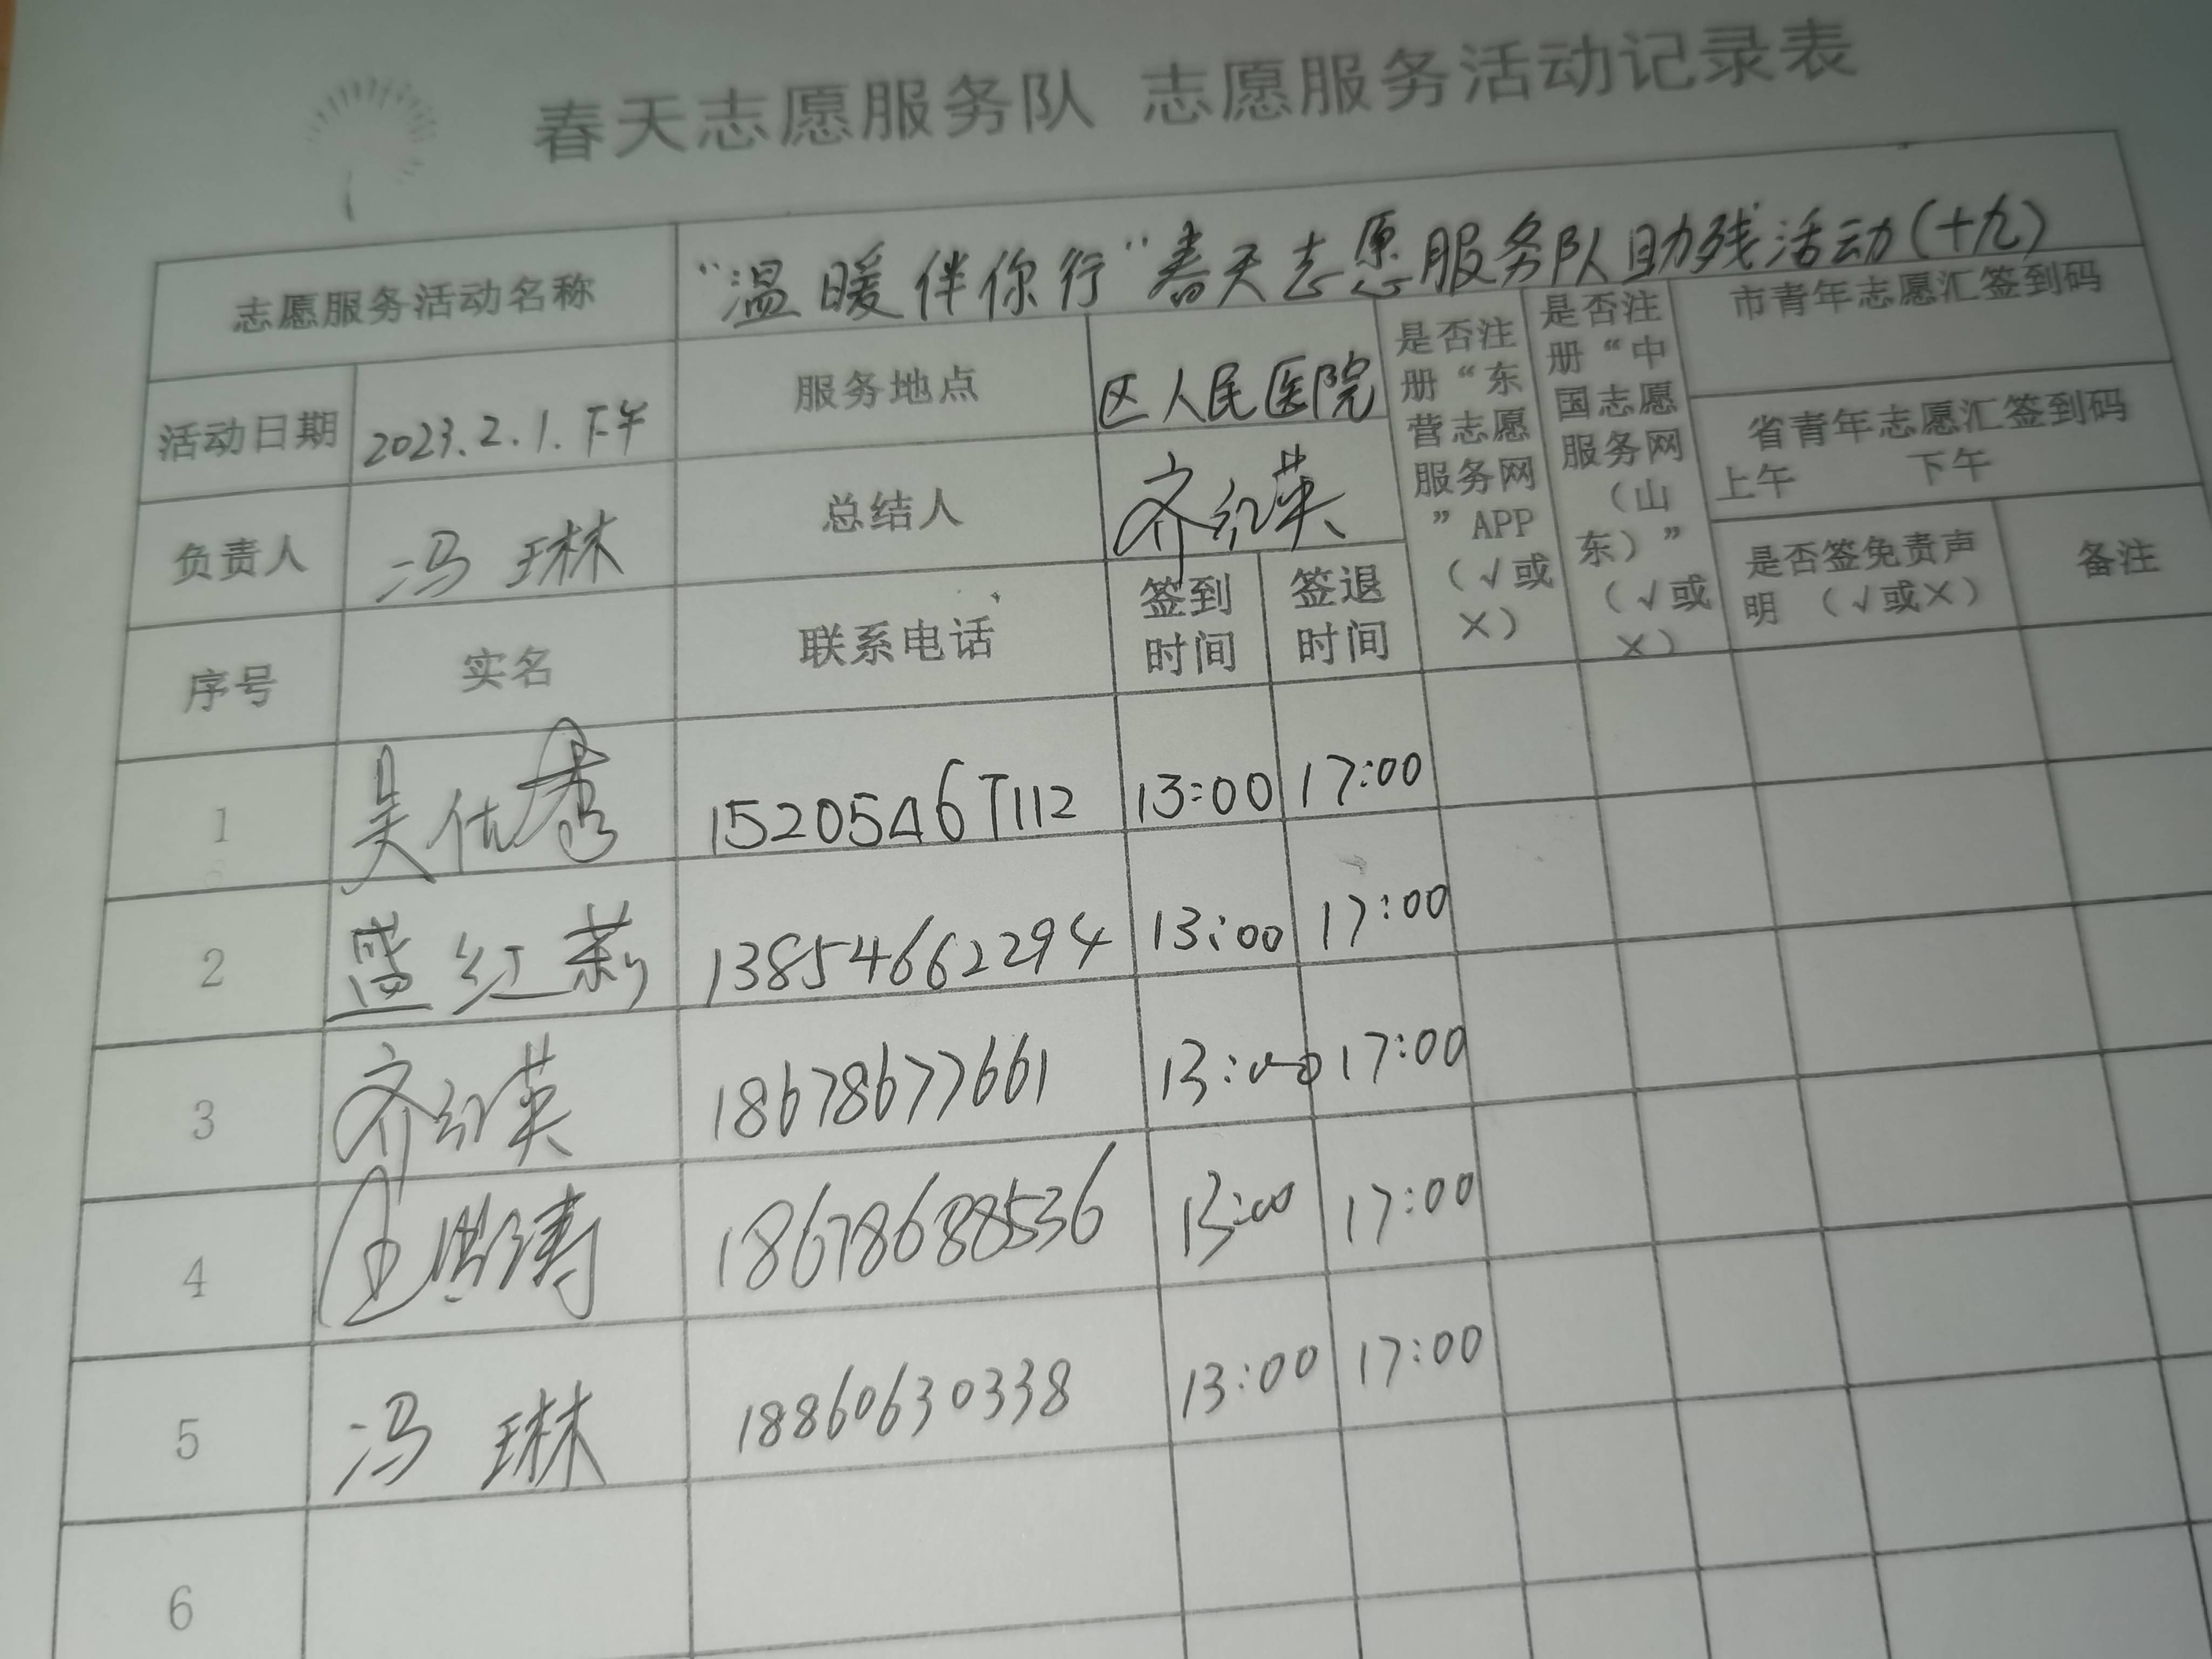 春天志愿服务队 志愿服务活动记录表
志愿服务活动名称 “温暖伴你行”春天志愿服务队助残活动(十九)
活动日期 2023.2.1.下午 服务地点 区人民医院
负责人 冯琳 总结人 齐红英
是否注册“东营志愿服务网”APP（√或×）
是否注册“中国志愿服务网（山东）”（√或×）
市青年志愿汇签到码
省青年志愿汇签到码
上午 下午
是否签免责声明（√或×） 备注
序号 实名 联系电话 签到时间 签退时间
1 吴 秀 15205467112 13:00 17:00
2 蓝红莉 13854662294 13:00 17:00
3 齐红英 18678677661 13:00 17:00
4 18678688536 13:00 17:00
5 冯琳 18860630338 13:00 17:00
6